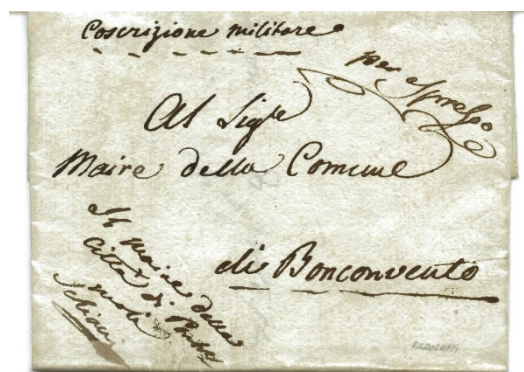 Coscrizione militare
per espresso
Al Sigre
Maire della Comune
di Bonconvento
Il Maire della
Città di